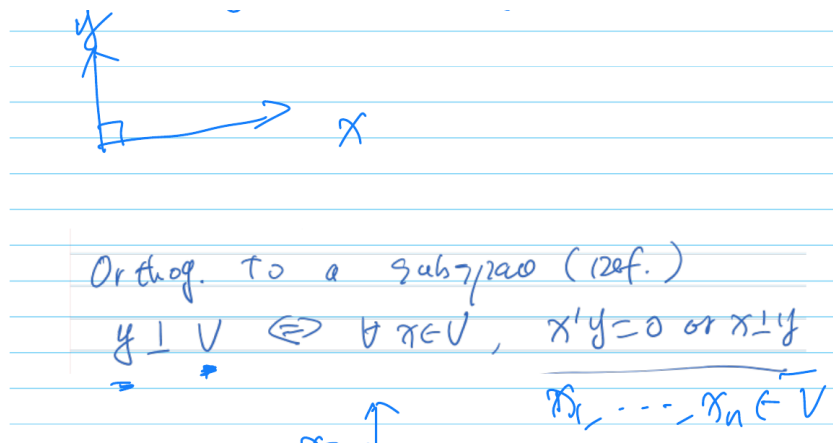 y
x
Orthog. to a subspace (Def.)
y ⊥ V ⇔ ∀ x∈V, x'y=0 or x⊥y
x₁, ..., xₙ ∈ V